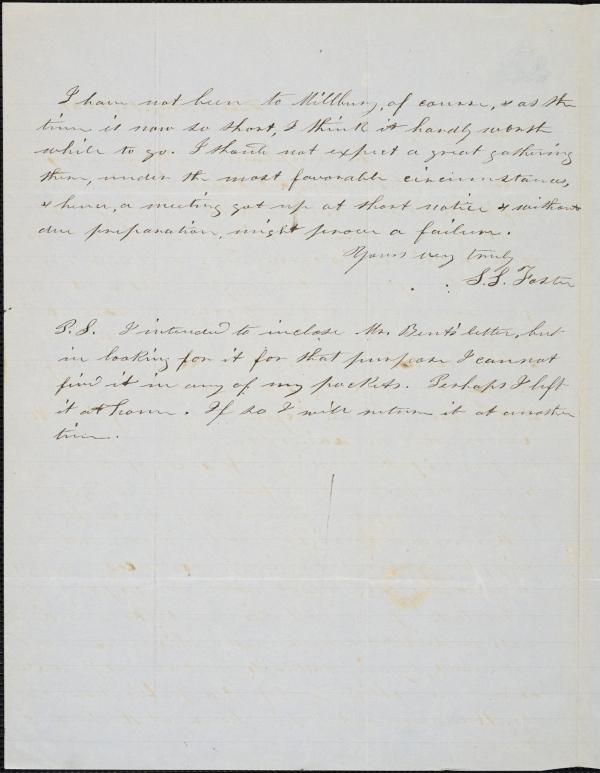 I have not been to Millbury, of course, & as the
time is now so short, I think it hardly worth
while to go. I should not expect a great gathering
there, under the most favorable circumstances,
& hence, a meeting got up at short notice & without
due preparation, might prove a failure.
Yours very truly
S. S. Foster
P.S. I intended to inclose Mr. Bent's letter, but
in looking for it for that purpose I cannot
find it in any of my pockets. Perhaps I left
it at home. If so I will return it at another
time.